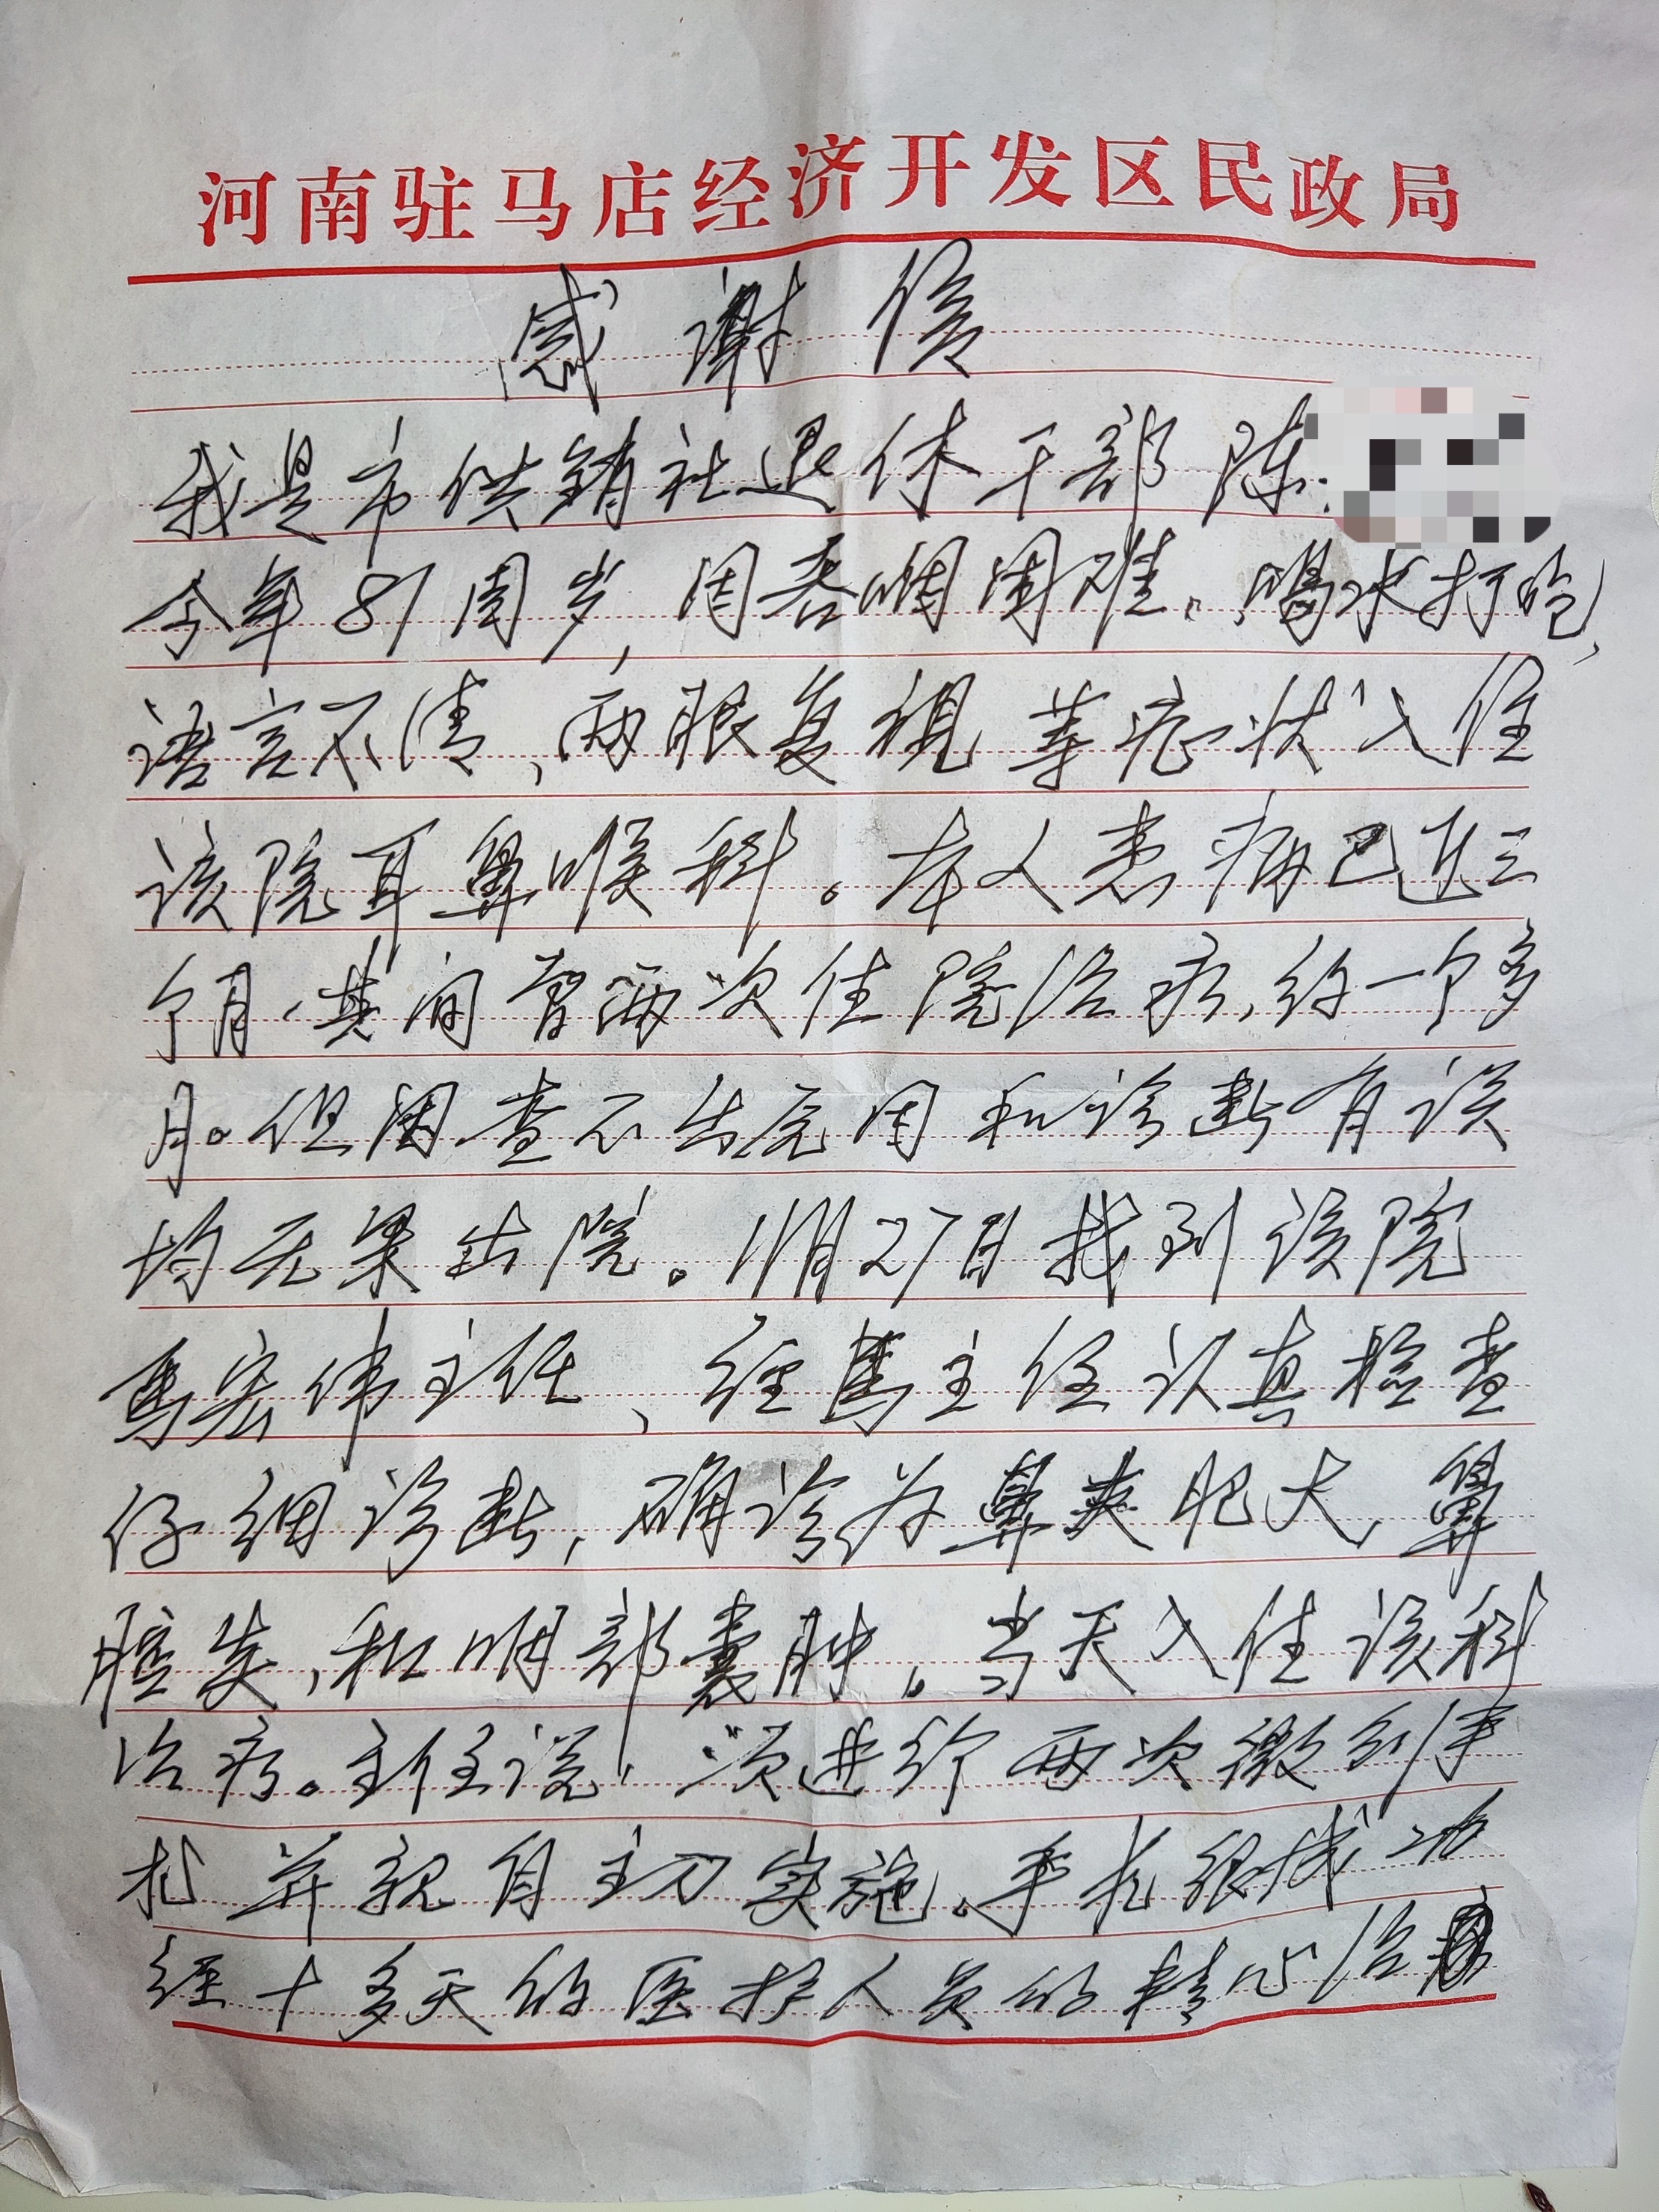 河南驻马店经济开发区民政局
感谢信
我是市供销社退休干部陈
今年81周岁,因吞咽困难、喝水打呛、
语言不清、两眼复视等症状入住
该院耳鼻喉科。本人患病已近三
个月、其间曾两次住院治疗,约一个多
月。但因查不出病因和诊断有误
均无果出院。11月27日找到该院
马宏伟主任、经马主任认真检查
仔细诊断,确诊为鼻夹肥大、鼻
腔炎、和咽部囊肿。当天入住该科
治疗。主任说,须进行两次微创手
术并亲自主刀实施。手术很成功
经十多天的医护人员的精心治